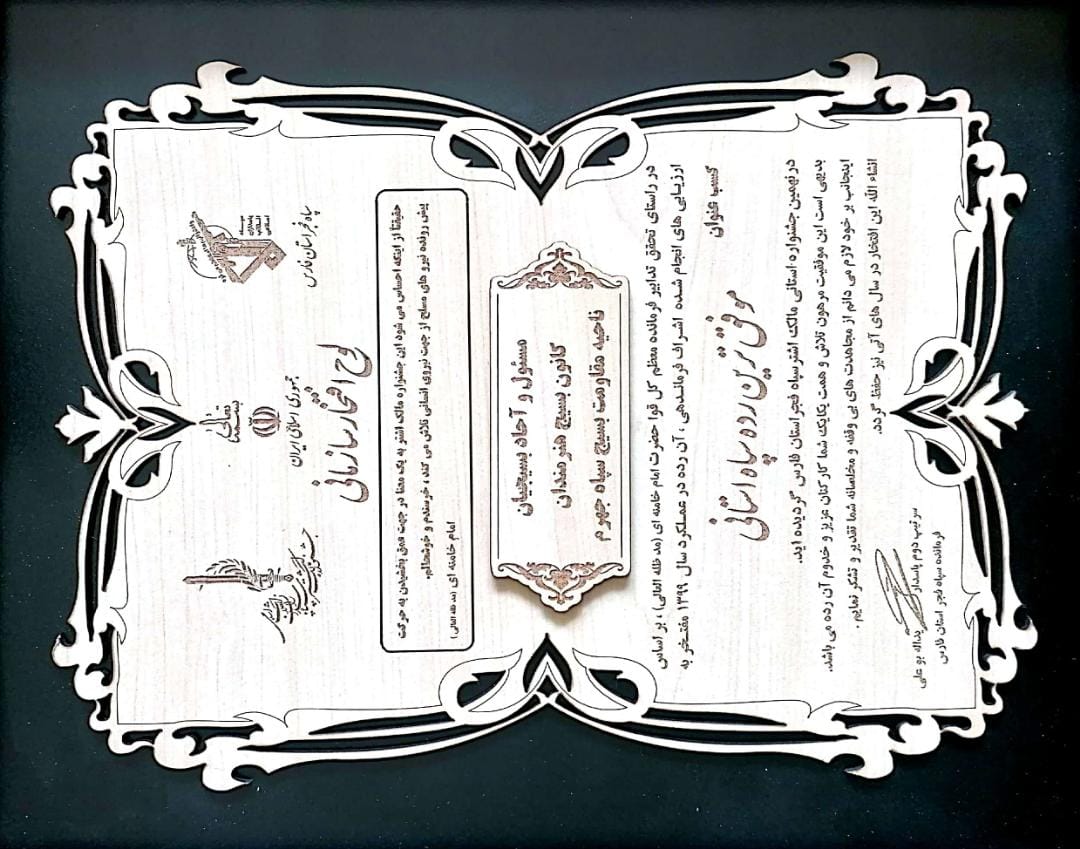 بسمه تعالی
جمهوری اسلامی ایران
سپاه فجر استان فارس
جشنواره مالک اشتر
لوح افتخار سازمانی
حقیقتاً از اینکه احساس می شود این جشنواره مالک اشتر به یک معنا در جهت عمق بخشیدن به حرکت
پیش رونده نیرو های مسلح از جهت نیروی انسانی تلاش می کند ، خرسندم و خوشحالم.
امام خامنه ای (مد ظله العالی)
مسئول و آحاد بسیجیان
کانون بسیج هنرمندان
ناحیه مقاومت بسیج سپاه جهرم
در راستای تحقق تدابیر فرمانده معظم کل قوا حضرت امام خامنه ای (مد ظله العالی) ، بر اساس
ارزیابی های انجام شده اشراف فرماندهی ، آن رده در عملکرد سال ۱۳۹۹ مفتخر به
کسب عنوان
موفق ترین رده سپاه استانی
در نهمین جشنواره استانی مالک اشتر سپاه فجر استان فارس گردیده اید.
بدیهی است این موفقیت مرهون تلاش و همت یکایک شما کارکنان عزیز و خدوم آن رده می باشد.
اینجانب بر خود لازم می دانم از مجاهدت های بی وقفه و مخلصانه شما تقدیر و تشکر نمایم .
انشاء الله این افتخار در سال های آتی نیز حفظ گردد.
سرتیپ دوم پاسدار یداله بو علی
فرمانده سپاه فجر استان فارس